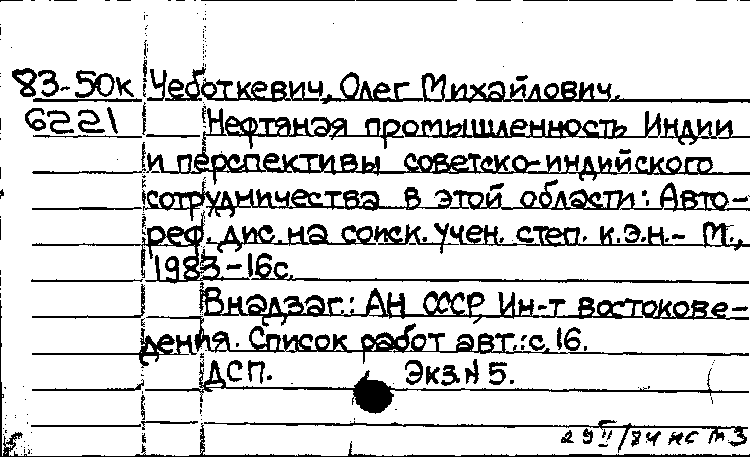 83-50к Чеботкевич, Олег Михайлович.
6221 Нефтяная промышленность Индии
и перспективы советско-индийского
сотрудничества в этой области: Авто-
реф. дис. на соиск. учен. степ. к.э.н.- М.,
1983.-16с.
Внадзаг.: АН СССР, Ин-т востокове-
дения. Список работ авт.: с. 16.
ДСП. Экз. № 5.
29 II/84